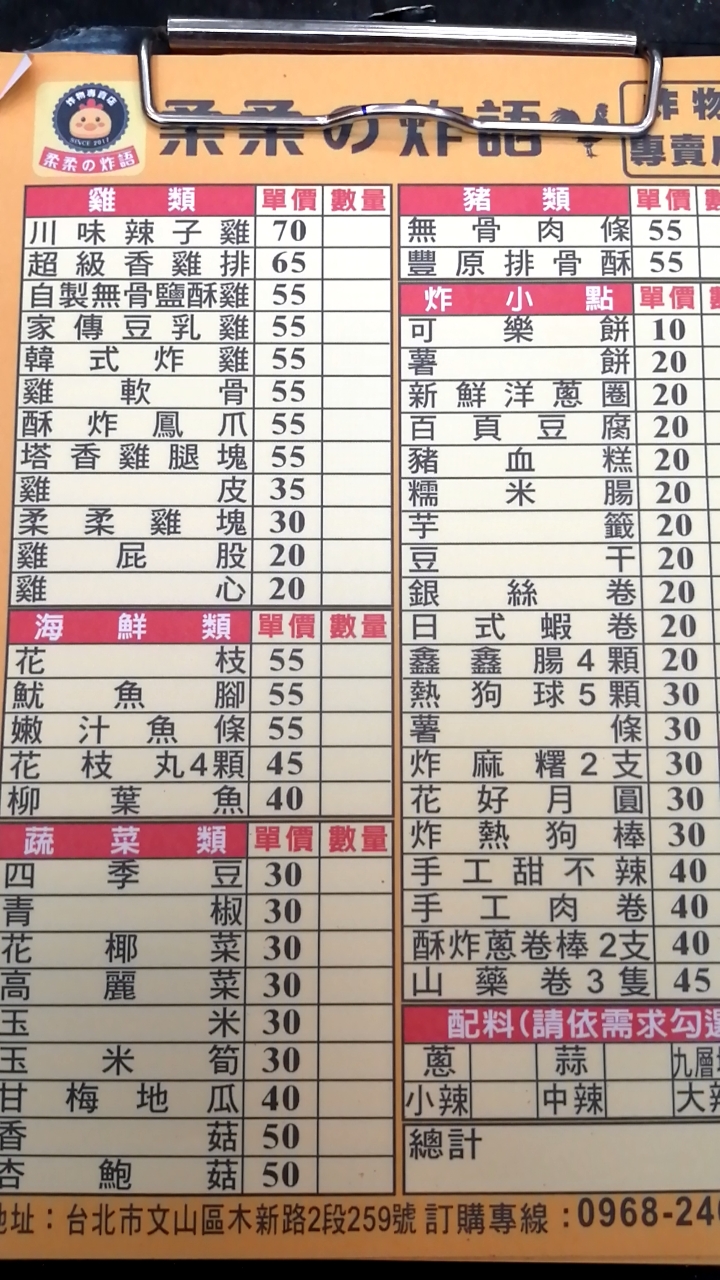 炸物專賣店
SINCE 2017
柔柔の炸語
柔柔の炸語
炸物
專賣店
雞類 單價 數量
川味辣子雞 70
超級香雞排 65
自製無骨鹽酥雞 55
家傳豆乳雞 55
韓式炸雞 55
雞軟骨 55
酥炸鳳爪 55
塔香雞腿塊 55
雞皮 35
柔柔雞塊 30
雞屁股 20
雞心 20
海鮮類 單價 數量
花枝 55
魷魚腳 55
嫩汁魚條 55
花枝丸4顆 45
柳葉魚 40
蔬菜類 單價 數量
四季豆 30
青椒 30
花椰菜 30
高麗菜 30
玉米 30
玉米筍 30
甘梅地瓜 40
香菇 50
杏鮑菇 50
豬類 單價 數
無骨肉條 55
豐原排骨酥 55
炸小點 單價 數
可樂餅 10
薯餅 20
新鮮洋蔥圈 20
百頁豆腐 20
豬血糕 20
糯米腸 20
芋籤 20
豆干 20
銀絲卷 20
日式蝦卷 20
鑫鑫腸4顆 20
熱狗球5顆 30
薯條 30
炸麻糬2支 30
花好月圓 30
炸熱狗棒 30
手工甜不辣 40
手工肉卷 40
酥炸蔥卷棒2支 40
山藥卷3隻 45
配料(請依需求勾選
蔥 蒜 九層塔
小辣 中辣 大辣
總計
地址：台北市文山區木新路2段259號 訂購專線：0968-240